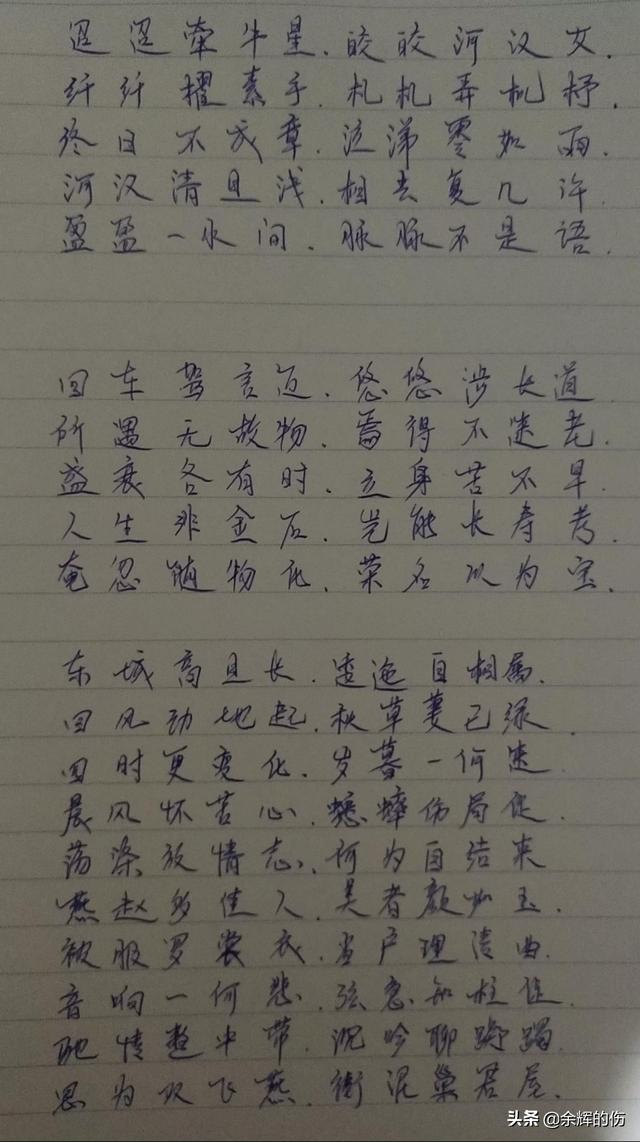 迢迢牵牛星.皎皎河汉女.
纤纤擢素手.札机弄机杼.
终日不成章.泣涕零如雨.
河汉清且浅.相去复几许
盈盈一水间.脉脉不是语.
回车驾言迈.悠悠涉长道
所遇无故物.焉得不速老.
盛衰各有时.立身苦不早.
人生非金石.岂能长寿考.
奄忽随物化.荣名以为宝.
东城高且长.逶迤自相属.
回风动地起.秋草萋已绿.
四时更变化.岁暮一何速.
晨风怀苦心.蟋蟀伤局促.
荡涤放情志.何为自结束
燕赵多佳人.美者颜如玉.
被服罗裳衣.当户理清曲.
音响一何悲.弦急知柱促.
驰情整中带.沉吟聊踯躅.
思为双飞燕.衔泥巢君屋.
头条 @余辉的伤